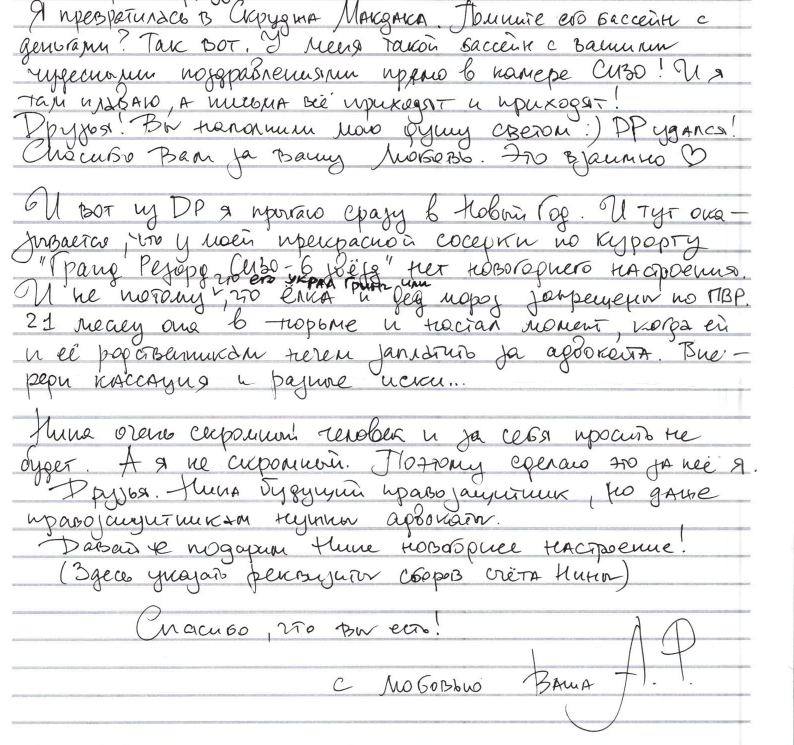 Я превратилась в Скруджа Макдака. Помните его бассейн с
деньгами? Так вот. У меня такой бассейн с вашими
чудесными поздравлениями прямо в камере СИЗО! И я
там плаваю, а письма всё приходят и приходят!
Друзья! Вы наполнили мою душу светом :) DP удался!
Спасибо Вам за Вашу любовь. Это взаимно ♡
И вот из DP я прыгаю сразу в Новый Год. И тут ока-
зывается, что у моей прекрасной соседки по курорту
"Гранд Резорд СИЗО-6 звёзд" нет новогоднего настроения.
что его украл Гринч или
И не потому, что ёлка и дед мороз запрещены по ПВР.
21 месяц она в тюрьме и настал момент, когда ей
и её родственникам нечем заплатить за адвоката. Впе-
реди кассация и разные иски...
Нина очень скромный человек и за себя просить не
будет. А я не скромный. Поэтому сделаю это за неё я.
Друзья. Нина будущий правозащитник, но даже
правозащитникам нужны адвокаты.
Давайте подарим Нине новогоднее настроение!
(Здесь указать реквизиты сборов счёта Нины)
Спасибо, что вы есть!
с любовью Ваша А.Р.